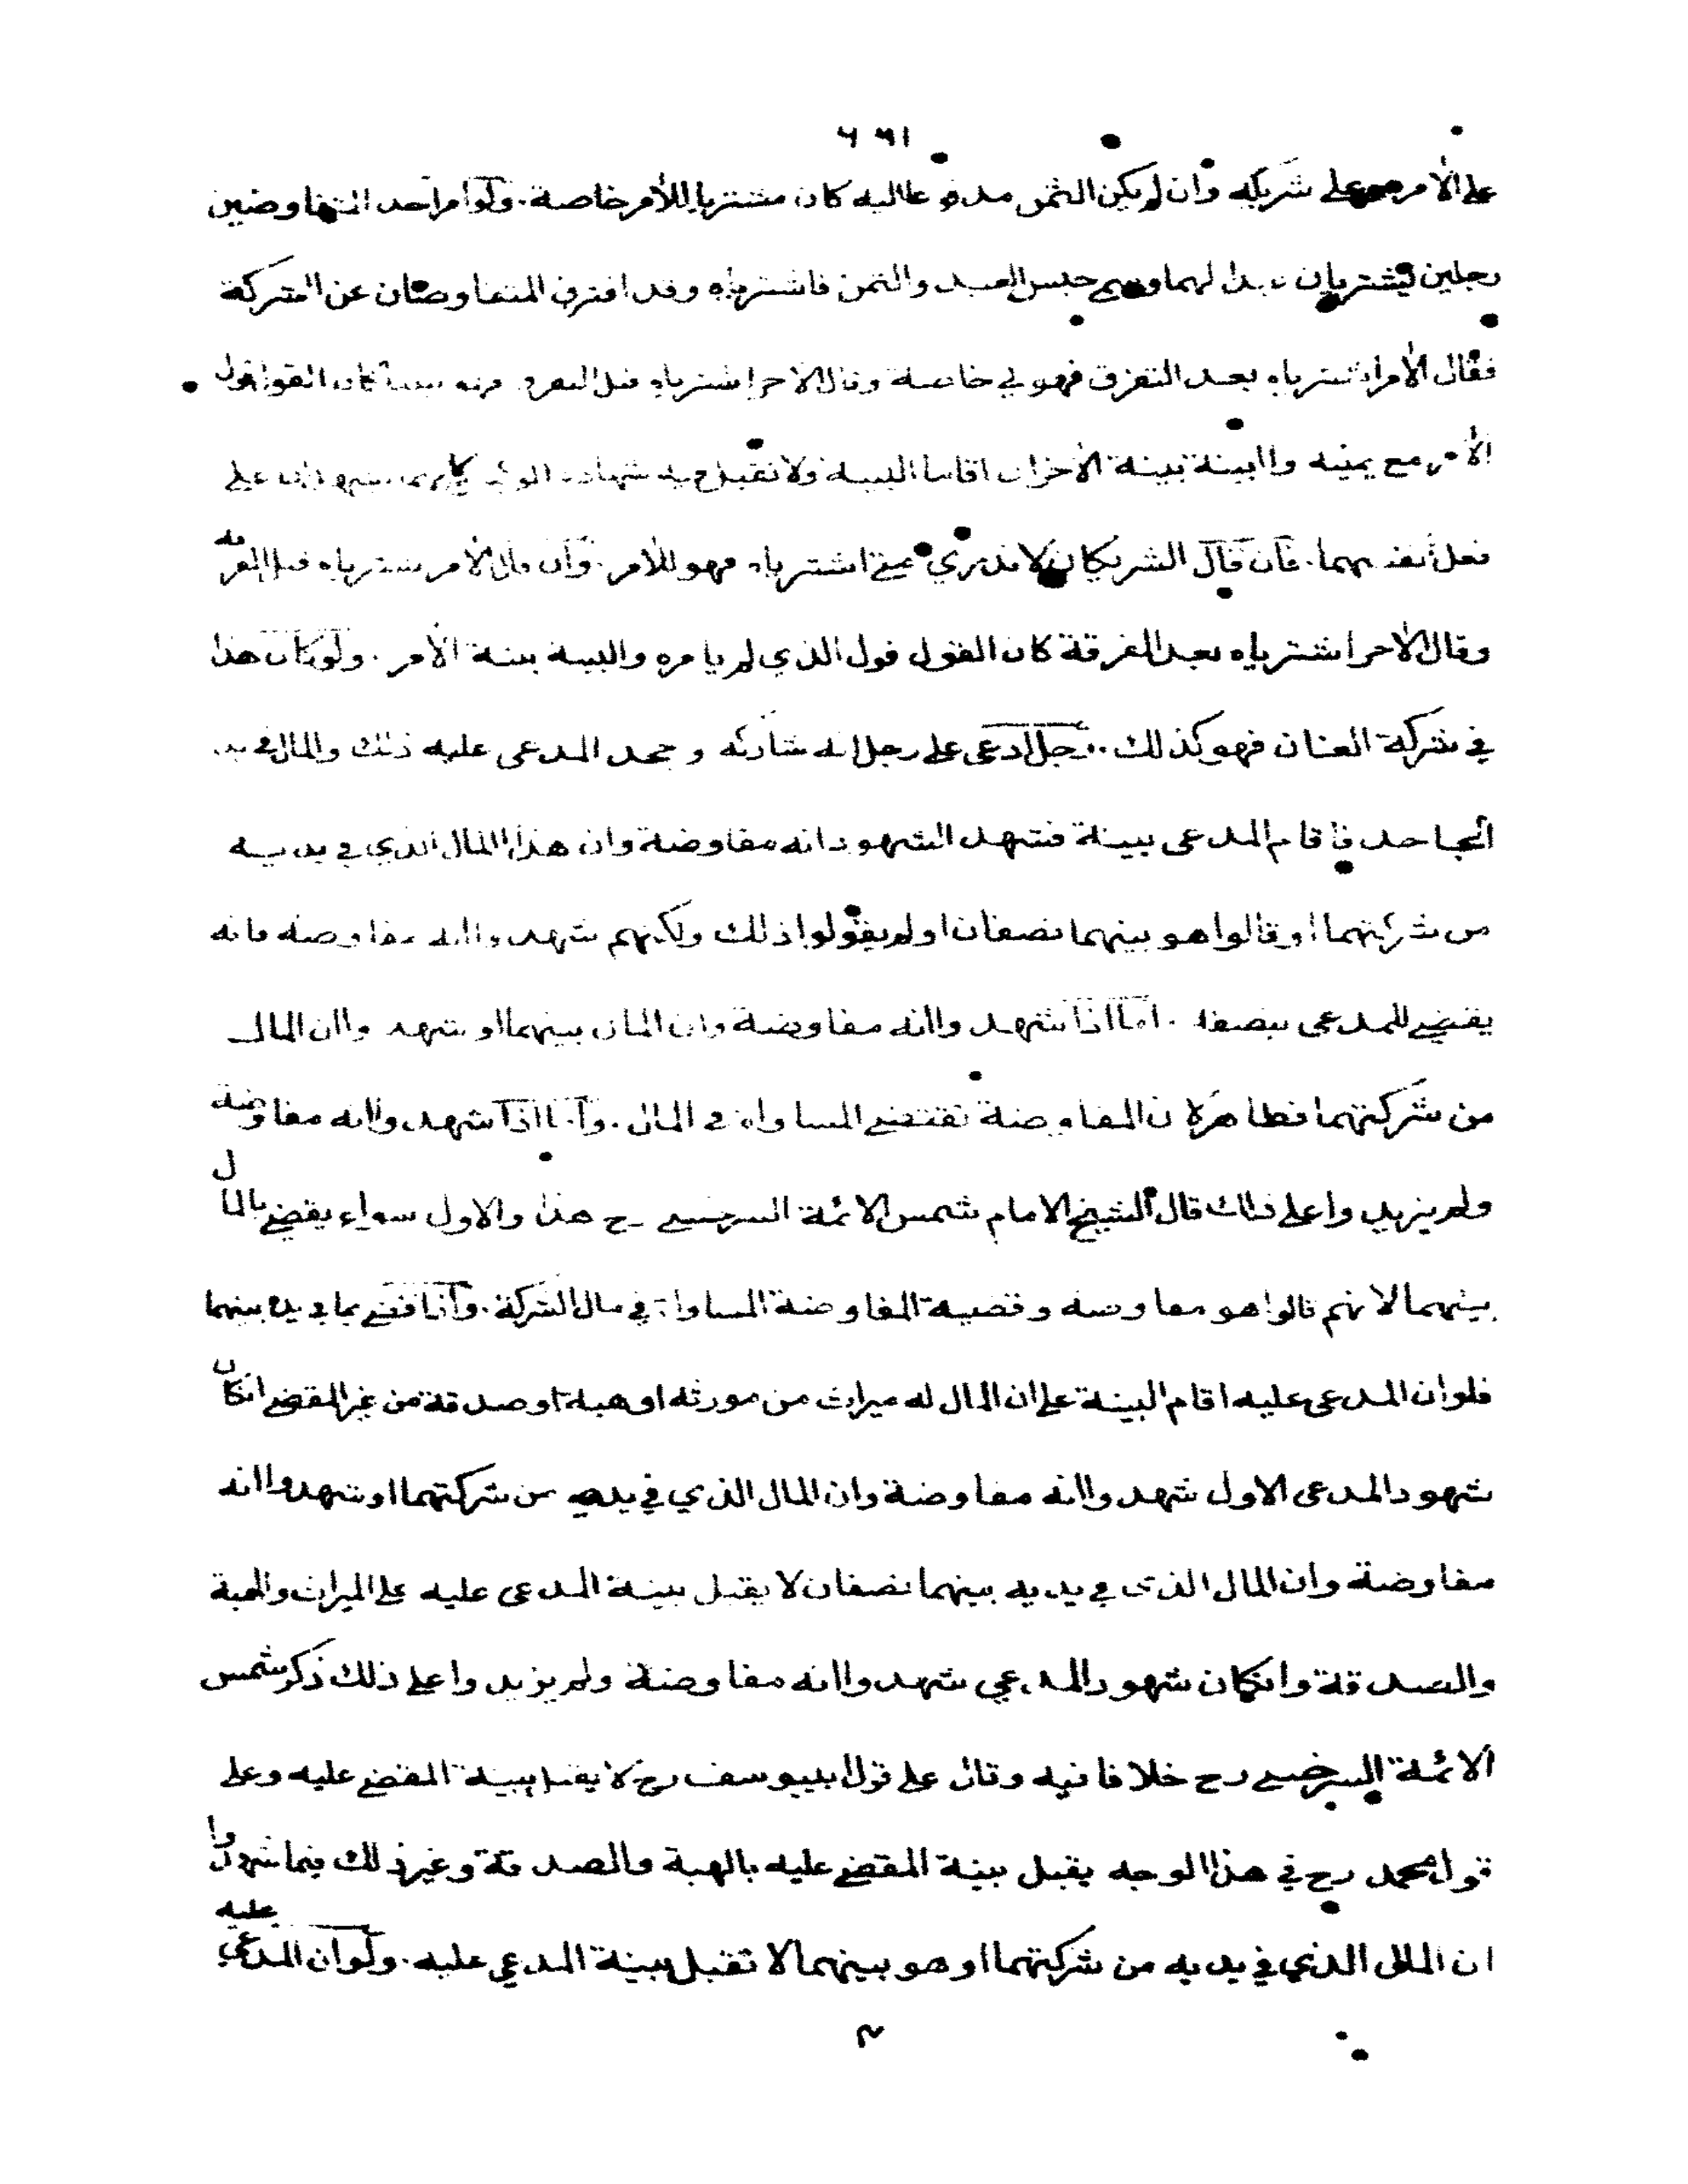 على الآمر وعلى شريكه وان لم يكن الثمن مدفوعا اليه كان مشتريا للآمر خاصة . ولو امر احد المتفاوضين
رجلين يشتريان عبدا لهما وسمى جنس العبد والثمن فاشترياه وقد افترق المتفاوضان عن الشركة
فقال الآمر اشترياه بعد التفرق فهو لي خاصة وقال الآخر اشترياه قبل التفرق فهو بيننا كان القول قول
الآمر مع يمينه والبينة بينة الآخر ان اقاما البينة ولا تقبل فيه شهادة الوكيلين لانهما يشهدان على
فعل أنفسهما . فان قال الشريكان لا ندري متى اشترياه فهو للآمر . وان قال الآمر اشترياه قبل الفرقة
وقال الآخر اشترياه بعد الفرقة كان القول قول الذي لم يأمره والبينة بينة الآمر . ولو كان هذا
في شركة العنان فهو كذلك . رجل ادعى على رجل انه شاركه و جحد المدعى عليه ذلك والمال في يد
الجاحد فاقام المدعى بينة فشهد الشهود انه مفاوضة وان هذا المال الذي في يديه
من شركتهما او قالوا هو بينهما نصفان او لم يقولوا ذلك ولكنهم شهدوا انه مفاوضة فانه
يقضى للمدعى بنصفه . اما اذا شهدوا انه مفاوضة وان المال بينهما او شهدوا ان المال
من شركتهما فظاهر لان المفاوضة تقتضى المساواة في المال . واما اذا شهدوا انه مفاوضة
ولم يزيدوا على ذلك قال الشيخ الامام شمس الائمة السرخسى رح هذا والاول سواء يقضى بالمال
بينهما لانهم قالوا هو مفاوضة وقضية المفاوضة المساواة في مال الشركة . واذا قضى بما في يده بينهما
فلو ان المدعى عليه اقام البينة على ان المال له ميراث من مورثه او هبة او صدقة من غير المقضى ان كان
شهود المدعى الاول شهدوا انه مفاوضة وان المال الذي في يديه من شركتهما او شهدوا انه
مفاوضة وان المال الذي في يديه بينهما نصفان لا يقبل بينة المدعى عليه على الميراث والهبة
والصدقة وان كان شهود المدعي شهدوا انه مفاوضة ولم يزيدوا على ذلك ذكر شمس
الائمة السرخسى رح خلافا فيه وقال على قول ابي يوسف رح لا يقبل بينة المقضى عليه وعلى
قول محمد رح في هذا الوجه يقبل بينة المقضى عليه بالهبة والصدقة وغير ذلك فيما شهدوا
ان المال الذي في يديه من شركتهما او هو بينهما لا تقبل بينة المدعي عليه . ولو ان المدعى عليه